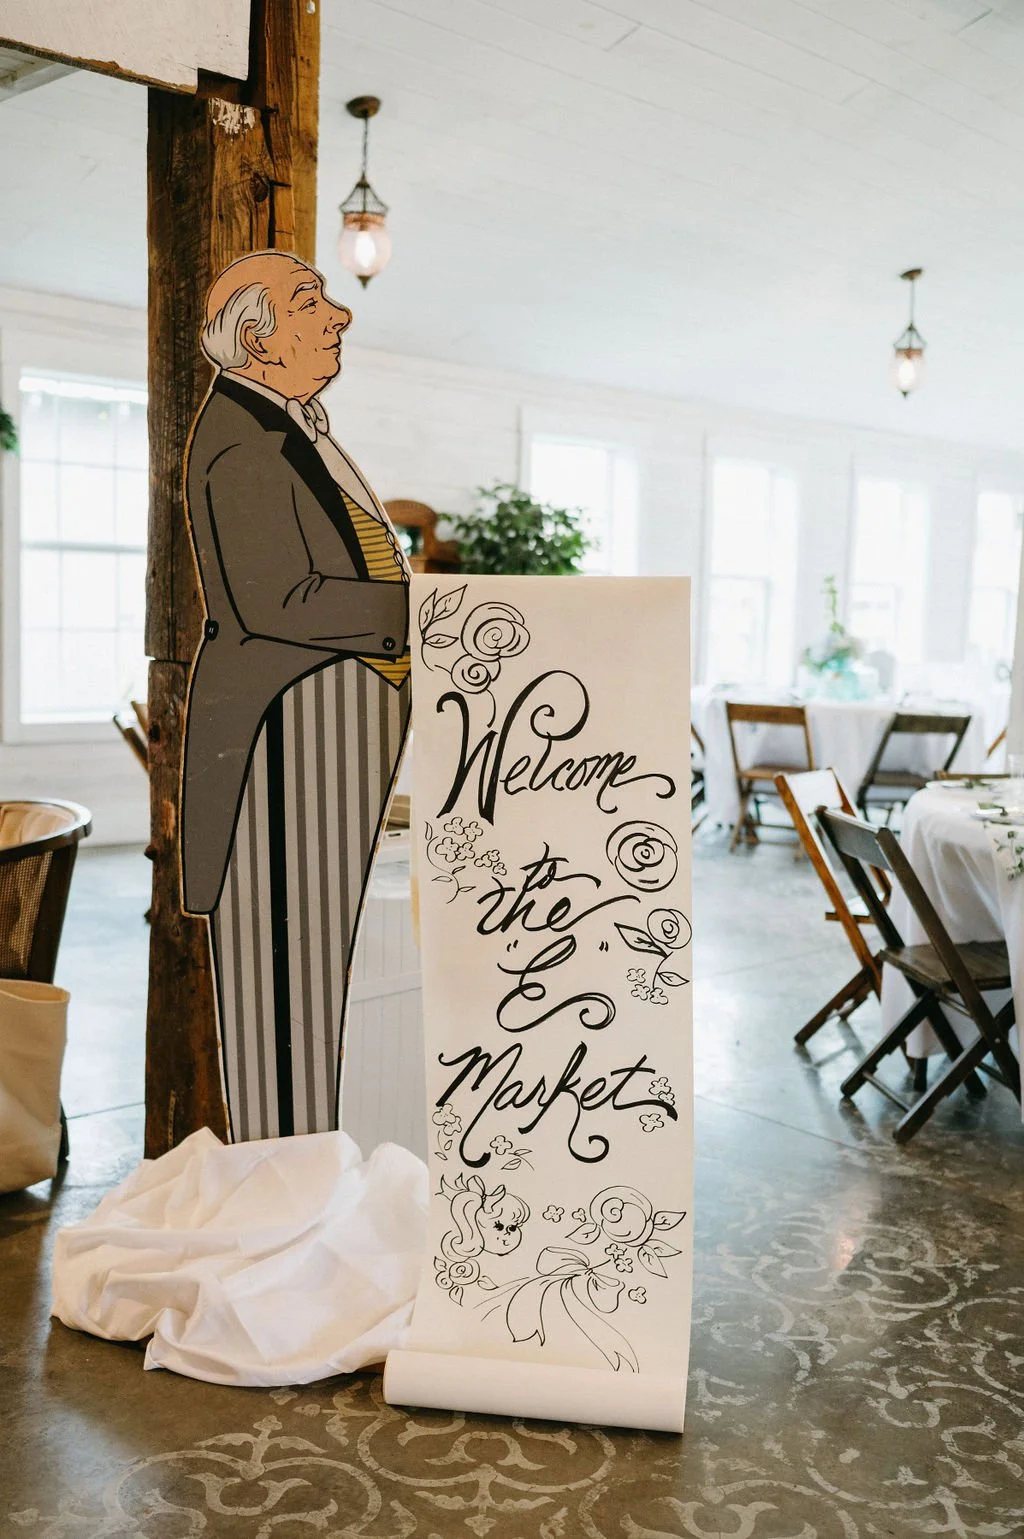 Welcome
to
the
"E"
Market